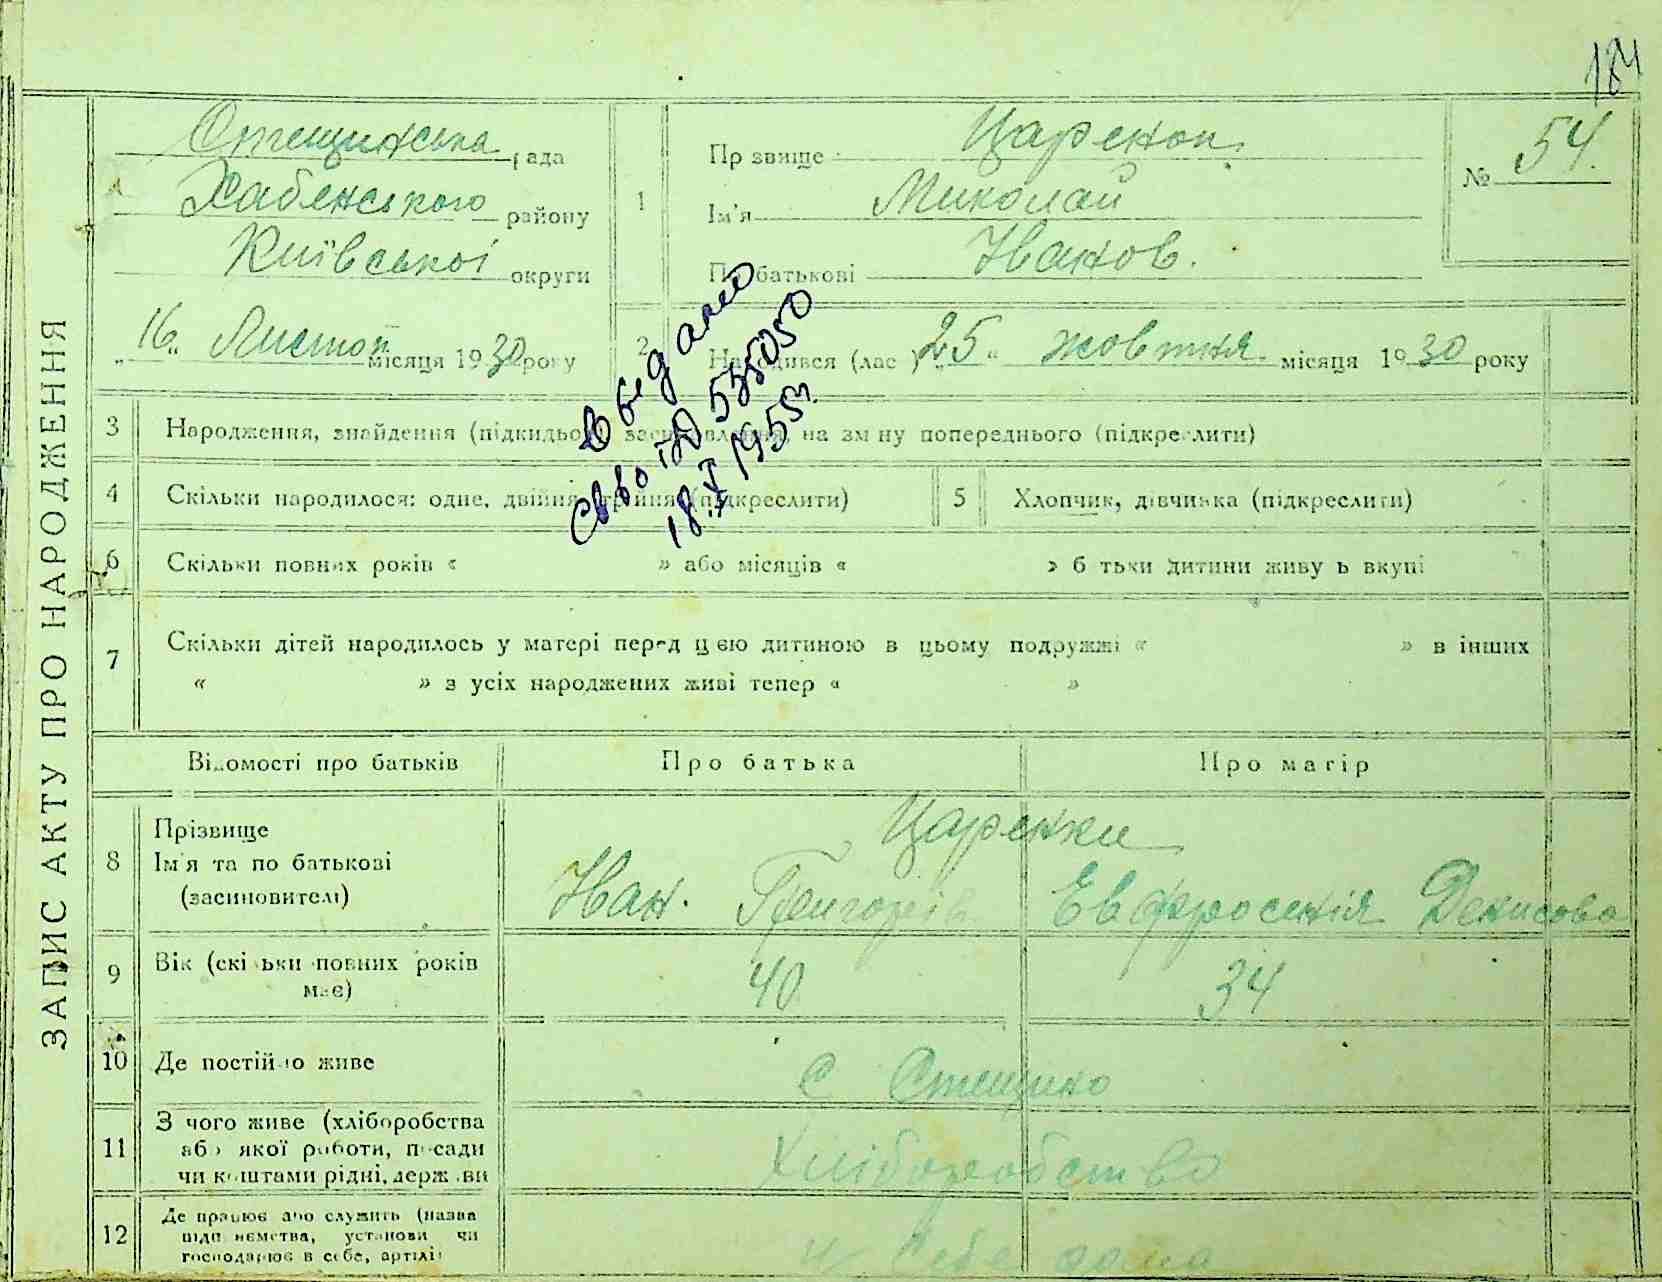 184
ЗАПИС АКТУ ПРО НАРОДЖЕННЯ
Стещинська рада
Хабенського району
Київської округи
„16“ Листоп місяця 1930 року
1
Прізвище Царенок
Ім'я Миколай
По батькові Іванов.
№ 54.
2
Народився (лас ) „25“ жовтня місяця 1930 року
Видано
св во 535050
18.X 1955 г.
3 Народження, знайдення (підкидьок) засиновлення, на зміну попереднього (підкреслити)
4 Скільки народилося: одне, двійня, трійня (підкреслити)
5 Хлопчик, дівчинка (підкреслити)
6 Скільки повних років « » або місяців « » батьки дитини живуть вкупі
7 Скільки дітей народилось у матері перед цією дитиною в цьому подружжі « » в інших
« » з усіх народжених живі тепер « »
Відомості про батьків Про батька Про матір
8 Прізвище
Ім'я та по батькові
(засиновителі)
Царенки
Іван. Григорів Евфросенія Денисова
9 Вік (скільки повних років
має)
40 34
10 Де постійно живе
с Стещино
11 З чого живе (хліборобства
або якої роботи, посади
чи коштами рідні, держави
Хліборобство
12 Де працює або служить (назва
підприємства, установи чи
господарює в себе, артілі